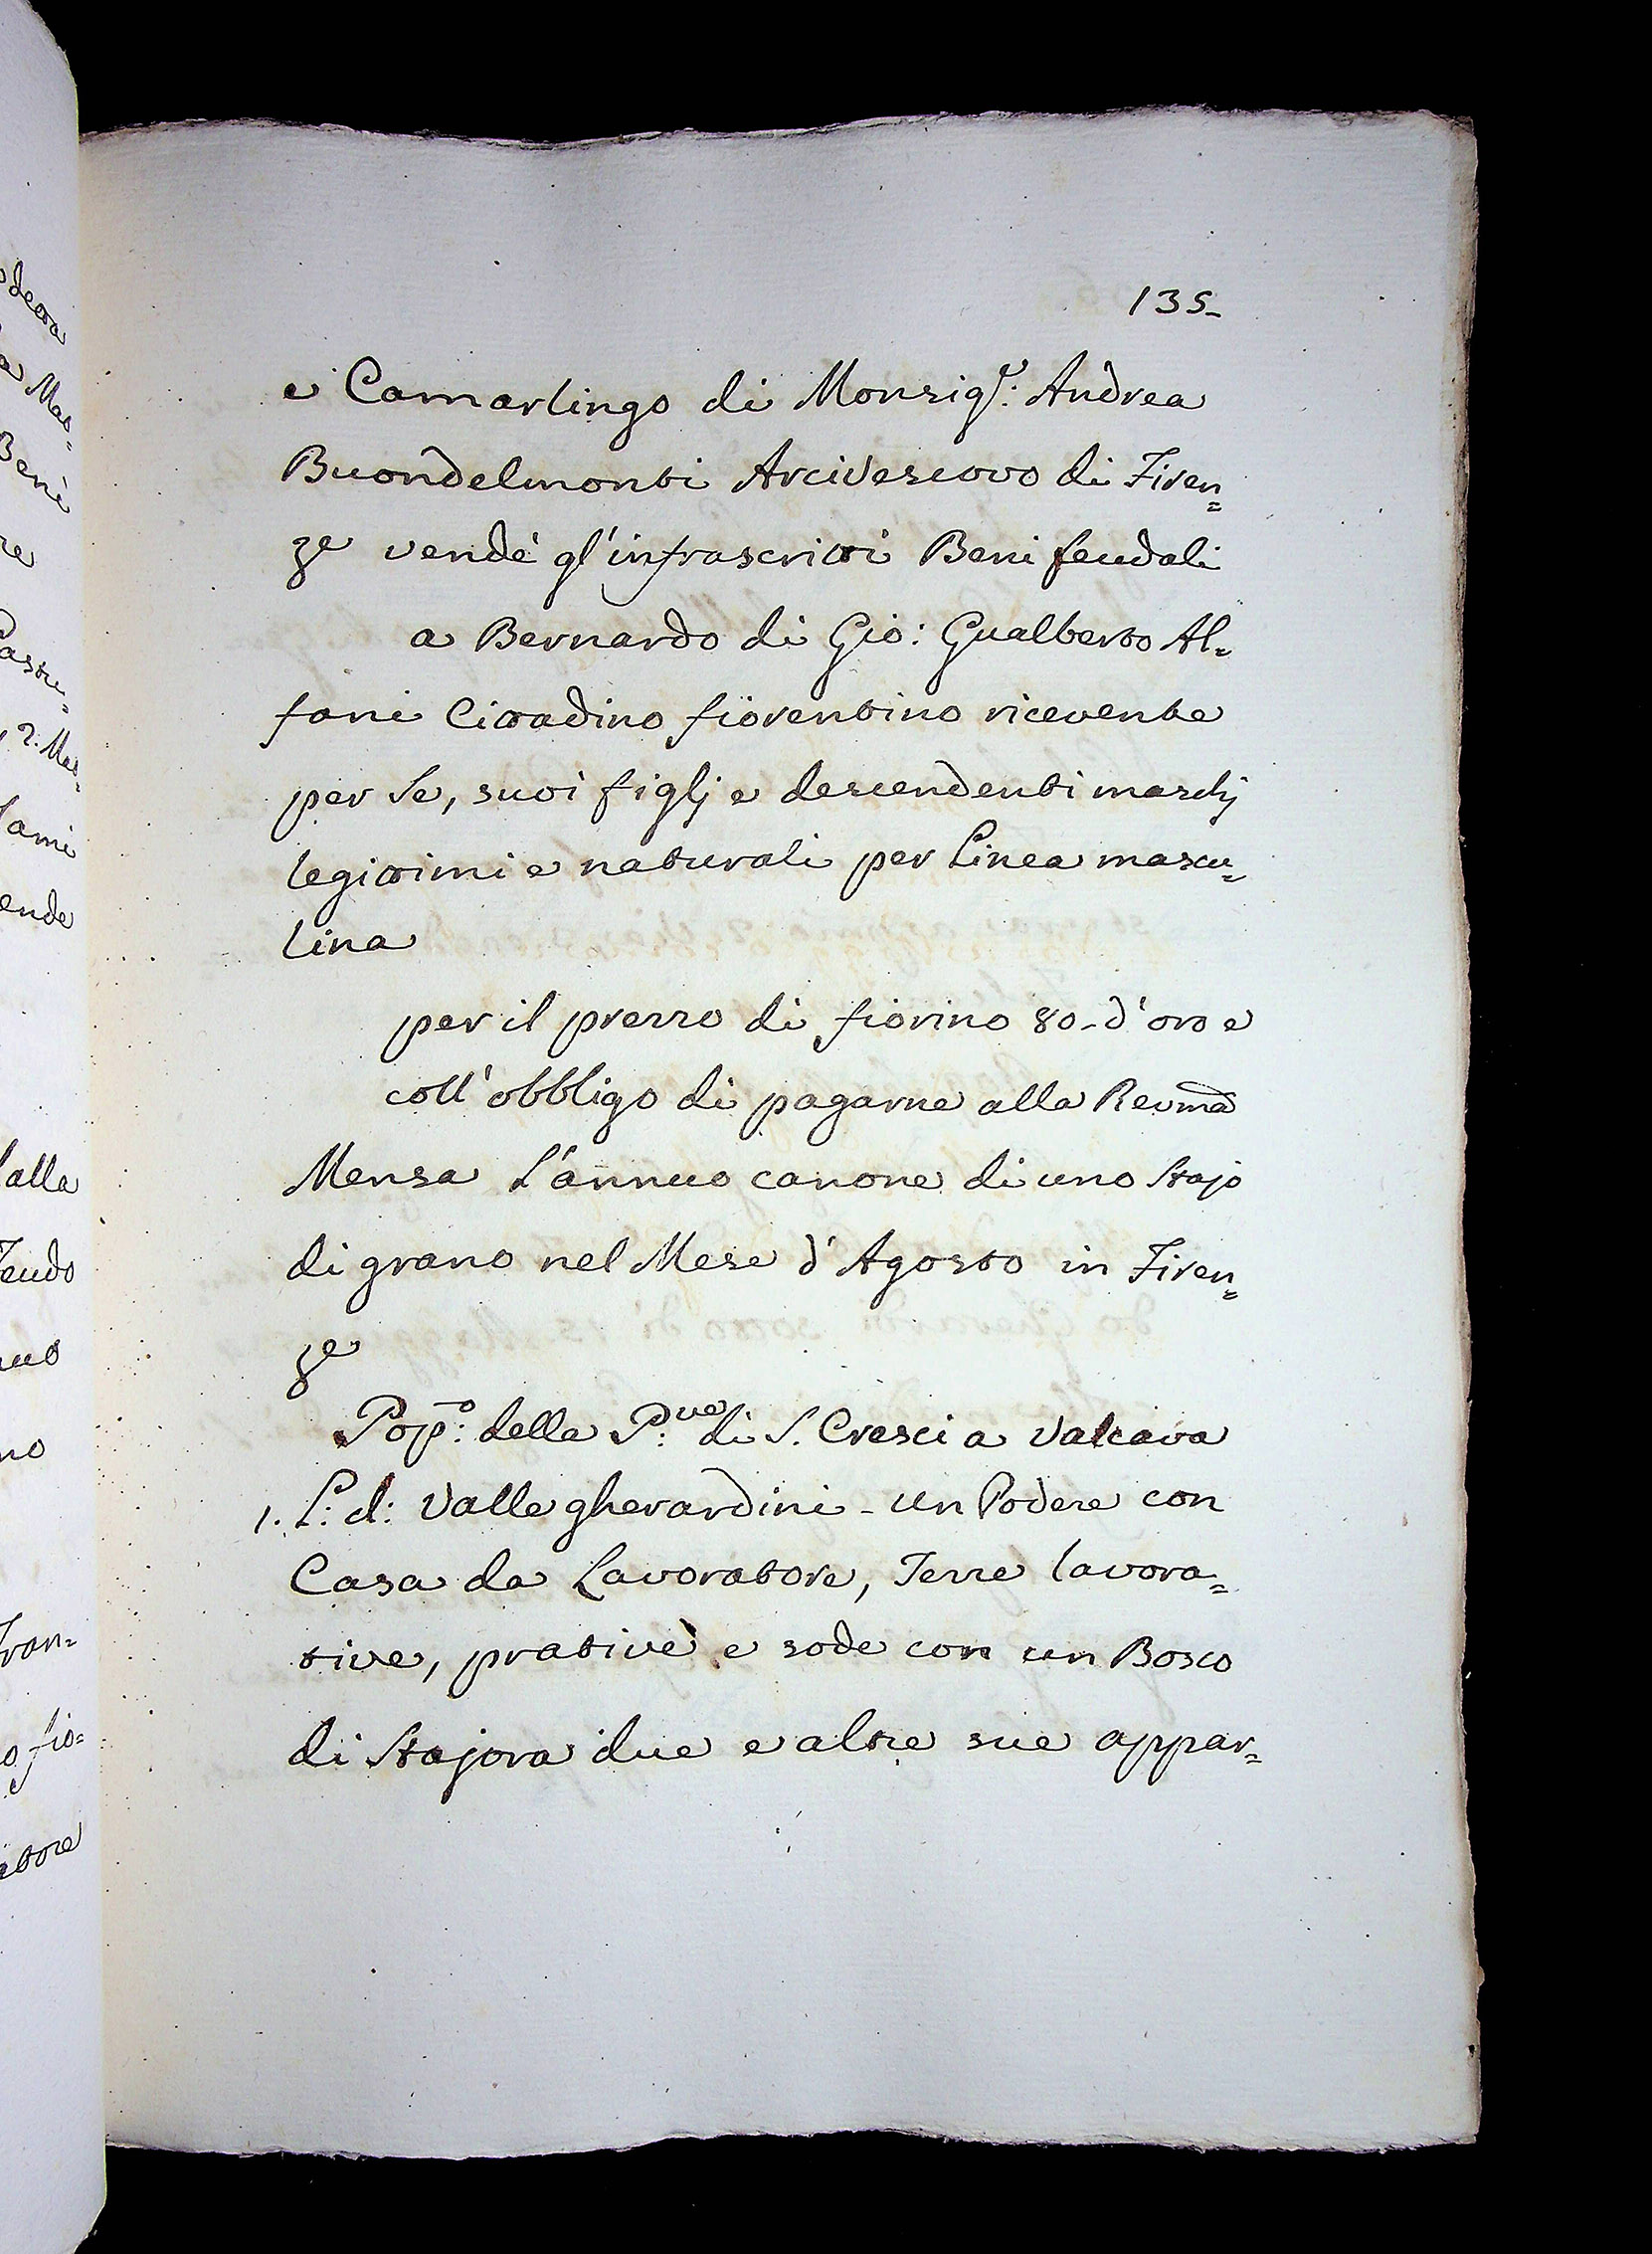 135-
e Camarlingo di Monsig.r: Andrea
Buondelmonti Arcivescovo di Firen=
ze vendé gl'infrascritti Beni feudali
a Bernardo di Gio: Gualberto Al=
fani Cittadino fiorentino ricevente
per Se, suoi figlj e descendenti maschj
legittimi e naturali per Linea mascu=
lina
per il prezzo di fiorino 80- d'oro e
coll'obbligo di pagarne alla Revma
Mensa L'annuo canone di uno Stajo
di grano nel Mese d'Agosto in Firen=
ze
Popo: della P:ve di S. Cresci a Valcava
1. L: d: Valle gherardini - un Podere con
Casa da Lavoratore, Terre lavora=
tive, prative e sode con un Bosco
di Stajora due e altre sue appar=
a Mas=
Beni
re
2. Mas=
ende
alla
Feudo
no
fio=